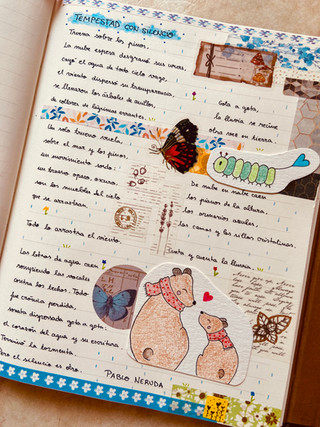 TEMPESTAD CON SILENCIO
Truena sobre los pinos.
La nube espesa desgranó sus uvas,
cayó el agua de todo cielo vago,
el viento dispersó su transparencia,
se llenaron los árboles de anillos,
de collares de lágrimas errantes.
Gota a gota,
la lluvia se reúne
otra vez en tierra.
Un solo trueno vuela
sobre el mar y los pinos,
un movimiento sordo:
un trueno opaco, oscuro,
son los muebles del cielo
que se arrastran.
De nube en nube caen
los pianos de la altura,
los armarios azules,
las camas y las sillas cristalinas.
Todo lo arrastra el viento.
Canta y cuenta la lluvia.
Las letras de agua caen
rompiendo las vocales
contra los techos. Todo
fue crónica perdida,
sonata dispersada gota a gota:
el corazón del agua y su escritura.
Terminó la tormenta.
Pero el silencio es otro.
PABLO NERUDA